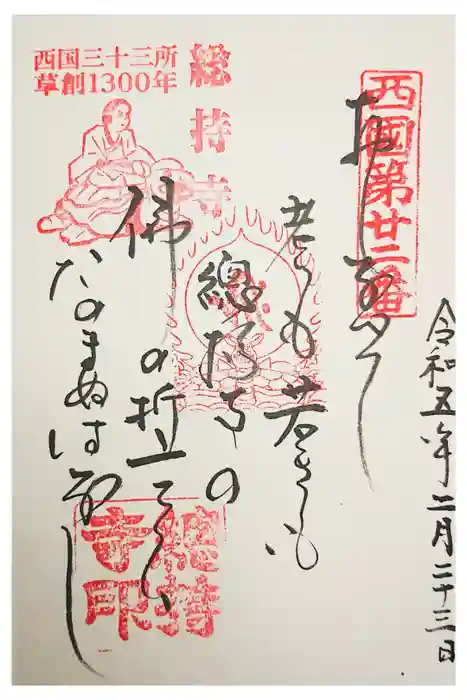 西国三十三所
草創1300年
総持寺
西國第廿二番
令和五年二月二十三日
老も若きも
總持寺の
佛の誓い
たのまぬはなし
總持寺印